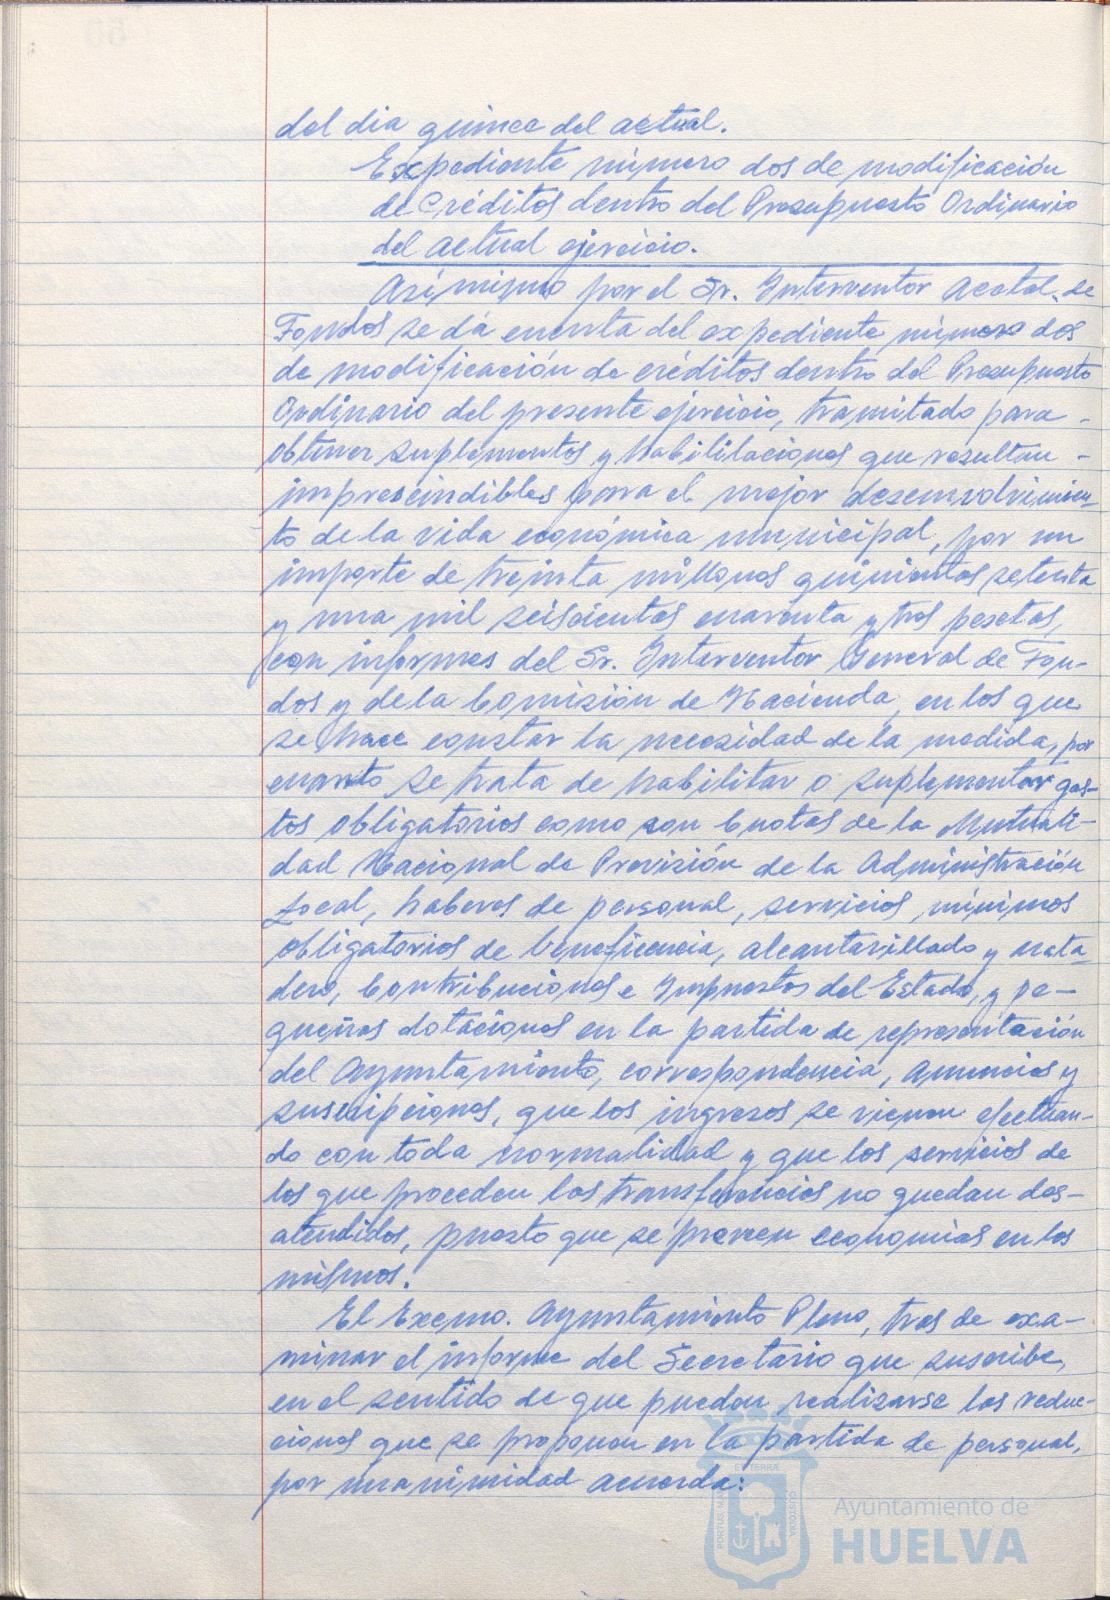 del dia quince del actual.
Expediente número dos de modificación
de Créditos dentro del Presupuesto Ordinario
del actual ejercicio.
Asímismo por el Sr. Interventor Acctal. de
Fondos se dá cuenta del expediente número dos
de modificación de créditos dentro del Presupuesto
Ordinario del presente ejercicio, tramitado para
obtener suplementos y habilitaciones que resultan
imprescindibles para el mejor desenvolvimien-
to de la vida económica municipal, por un
importe de treinta millones quinientas setenta
y una mil seiscientas cuarenta y tres pesetas,
con informes del Sr. Interventor General de Fon-
dos y de la Comisión de Hacienda, en los que
se hace constar la necesidad de la medida, por
cuanto se trata de habilitar o suplementar gas-
tos obligatorios como son Cuotas de la Mutuali-
dad Nacional de Previsión de la Administración
Local, haberes de personal, servicios mínimos
obligatorios de beneficencia, alcantarillado y mata-
dero, Contribuciones e Impuestos del Estado, y pe-
queñas dotaciones en la partida de representación
del Ayuntamiento, correspondencia, anuncios y
suscripciones, que los ingresos se vienen efectuan-
do con toda normalidad y que los servicios de
los que proceden las transferencias no quedan des-
atendidos, puesto que se preveen economías en los
mismos.
El Excmo. Ayuntamiento Pleno, tras de exa-
minar el informe del Secretario que suscribe,
en el sentido de que pueden realizarse las reduc-
ciones que se proponen en la partida de personal,
por unanimidad acuerda:
Ayuntamiento de
HUELVA